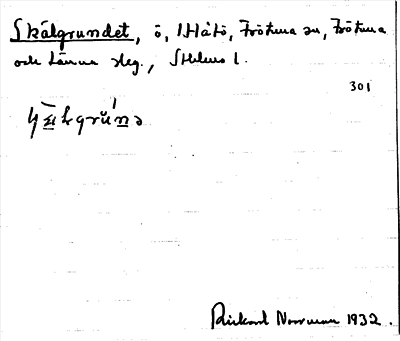 Skälgrundet, ö, Håtö, Frötuna sn, Frötuna
och Länna slg., Sthlms l.
301
Rickard Norrman 1932.